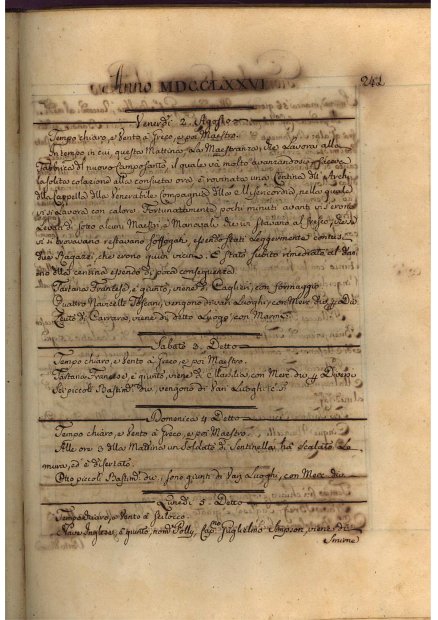 Anno MDCCLXXVI 241
Venerdì 2 Agosto
Tempo chiaro, e Vento à Greco, e poi Maestro.
In tempo in cui, questa Mattina, la Maestranza, che Lavora alla
Fabbrica di nuovo Camposanto, il quale và molto avanzandosi, faceva
la solita colazione alla consueta ora, è rovinata una Centina
della Cappella della Venerabile Compagnia della Misericordia, nella quale
vi si lavora con calore. Fortunatamente pochi minuti avanti vi s'erono
Levati di sotto alcuni Mastri, e Manovali
vi si trovavano restavano soffogati, essendo stati leggermente contusi
due Ragazzi, che erono quivi vicini. È stato subito rimediato al dan
no della centina essendo di poca conseguenza.
Tartana Franzese, è giunta, viene di Caglieri, con formaggio
Quattro Navicelli Toscani, vengono di vari Luoghi, con Merc
Leuto di Carrara, viene di detto Luogo, con Marmi.
Sabato 3 Detto
Tempo chiaro, e Vento à Greco, e poi Maestro.
Tartana Francese, è giunta, viene di con Merc. div.
Sei piccoli Bastim. div. vengono di Vari Luoghi
Domenica 4 Detto
Tempo chiaro, e Vento à Greco, e poi Maestro.
Alle ore 3 della Mattina un Soldato di Sentinella, hà scalato le
mura, ed è disertato.
Otto piccoli Bastim. div. sono giunti di Vari Luoghi, con Merc. div.
Lunedì 5 Detto
Tempo chiaro, e Vento à Scilocco.
Nave Inglese, è giunta, nom. Polly, Cap. Guglielmo Simpson, viene di
Smirne